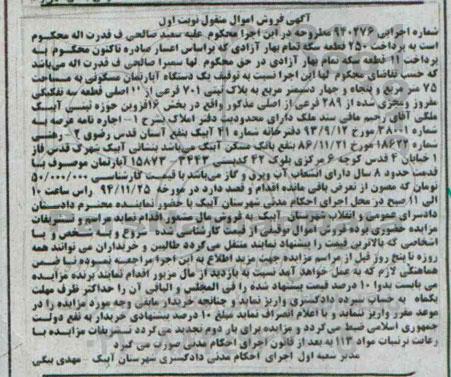 آگهی فروش اموال منقول نوبت اول
شماره اجرایی ۹۲۰۲۷۶ مطروحه در این اجرا محکوم علیه سعید صالحی ف قدرت اله محکوم
است به پرداخت ۲۵۰ قطعه سکه تمام بهار آزادی که براساس اعسار صادره تاکنون محکوم به
پرداخت ۱۱ قطعه سکه تمام بهار آزادی در حق محکوم لها سمیرا صالحی ف قدرت اله می‌باشد
که حسب تقاضای محکوم لها این اجرا نسبت به توقیف یک دستگاه آپارتمان مسکونی به مساحت
۷۵ متر مربع و پنجاه و چهار دسیمتر مربع به پلاک ثبتی ۷۰۱ فرعی از ۱۰ اصلی قطعه سه تفکیکی
مفروز و مجزی شده از ۲۸۹ فرعی از اصلی مذکور واقع در بخش ۱۶ قزوین حوزه ثبتی آبیک
ملکی آقای رحیم مافی سند ملک دارای محدودیت دفتر املاک بشرح ۱- اجاره نامه عرصه به
شماره ۳۸۰۰۱ مورخ ۹۳/۹/۱۲ دفترخانه شماره ۴۱ آبیک بنفع آستان قدس رضوی ۲- رهنی
شماره ۱۸۶۲۲ مورخ ۸۶/۱۱/۲۱ بنفع بانک مسکن آبیک می‌باشد بنشانی آبیک شهرک قدس فاز
۱ خیابان ۴ قدس کوچه ۶ مرکزی بلوک ۴۲ کدپستی ۳۴۴۳ – ۱۵۸۷۳ آپارتمان موصوف بنا
قدمت حدود ۸ سال دارای انشعاب آب و برق و گاز می‌باشد با قیمت کارشناسی ۵۰/۰۰۰/۰۰۰
تومان که مصون از تعرض باقی مانده اقدام و قصد دارد در مورخه ۹۴/۱۱/۲۵ راس ساعت ۱۰
الی ۱۱ صبح در محل اجرای احکام مدنی شهرستان آبیک با حضور نماینده محترم دادستان
دادسرای عمومی و انقلاب شهرستان آبیک به فروش مال مشروح اقدام نماید مراسم و تشریفات
مزایده حضوری بوده فروش اموال توقیفی از قیمت کارشناسی شده شروع و به شخص و یا
اشخاصی که بالاترین قیمت را پیشنهاد نمایند منتقل می‌گردد طالبین و خریداران می توانند همه
روزه تا پنج روز قبل از مراسم مزایده جهت مزید اطلاع به این اجرا مراجعه نموده تا ضمن
هماهنگی لازم که به عمل خواهد آمد نسبت به بازدید از مال مزبور اقدام نمایند برنده مزایده
می بایست بدوا ۱۰ درصد قیمت پیشنهاد شده را فی المجلس و الباقی آن را حداکثر ظرف مهلت
یکماه به حساب سپرده دادگستری واریز نماید و چنانچه خریدار مابقی وجه مورد مزایده را در
موعد مقرر واریز ننماید و یا اعلام انصراف نماید مبلغ ۱۰ درصد پیشنهادی خریدار به نفع دولت
جمهوری اسلامی ضبط می‌گردد و مزایده برای بار دوم تجدید می‌گردد تشریفات مزایده با
رعایت ترتیبات مواد ۱۱۳ به بعد از قانون اجرای احکام مدنی صورت می گیرد
مدیر شعبه اول اجرای احکام مدنی دادگستری شهرستان آبیک مهدی بیگی